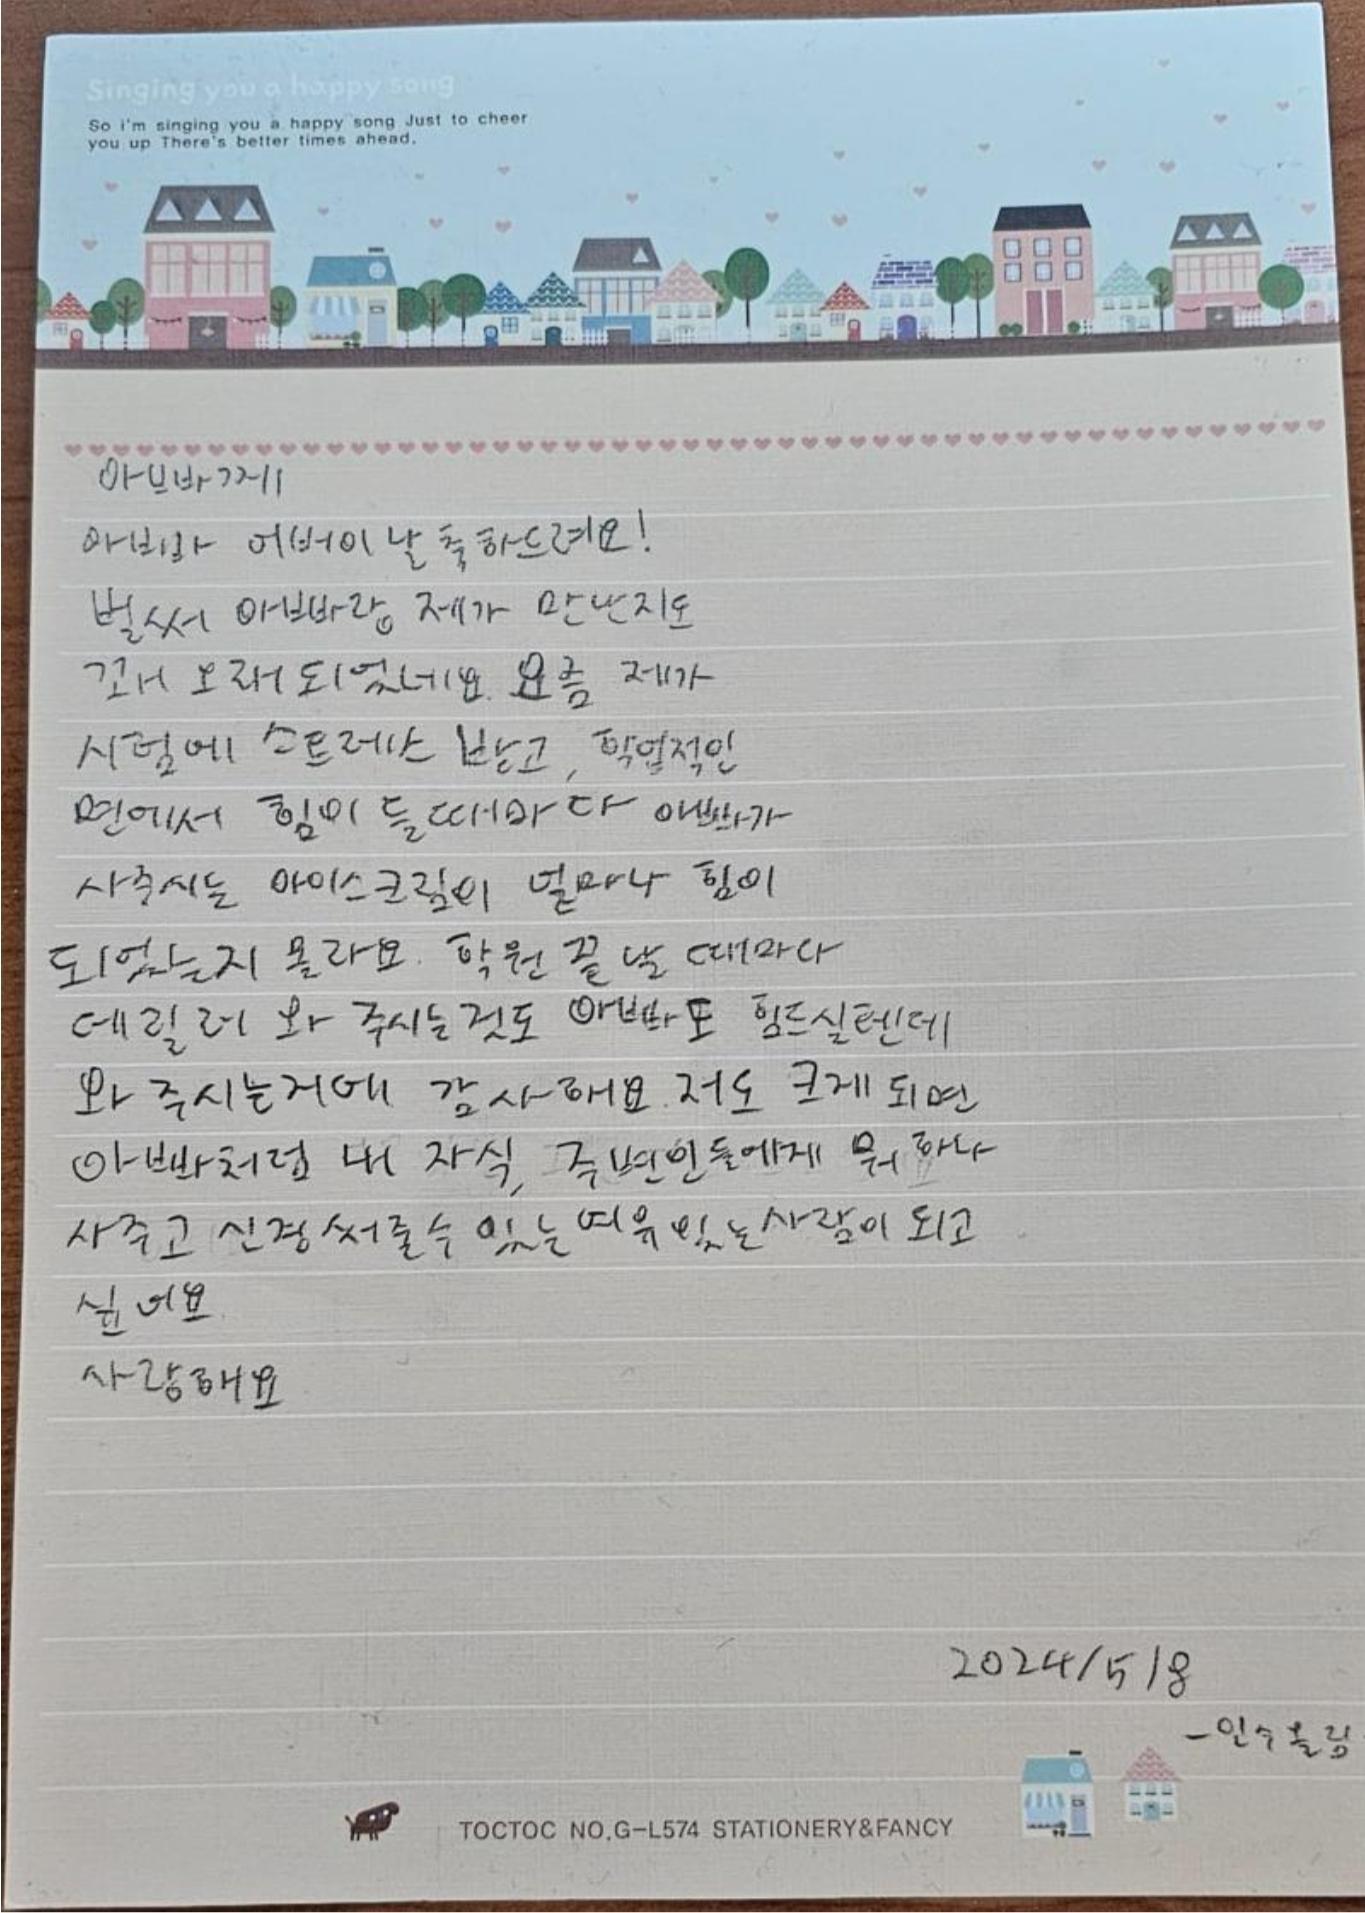 Singing you a happy song
So i'm singing you a happy song Just to cheer
you up There's better times ahead.
아브바께
아빠 어버이날 축하드려요!
벌써 아빠랑 제가 만난지도
꽤 오래 되었네요. 요즘 제가
시험에 스트레스 받고, 학업적인
면에서 힘이 들때마다 아빠가
사주시는 아이스크림이 얼마나 힘이
되었는지 몰라요. 학원 끝날 때마다
데릴러 와 주시는것도 아빠도 힘드실텐데
와 주시는거에 감사해요. 저도 크게 되면
아빠처럼 내 자식, 주변인들에게 뭐 하나
사주고 신경써줄수 있는 여유있는 사람이 되고
싶어요.
사랑해요
2024/5/8
-인수올림-
TOCTOC NO.G-L574 STATIONERY&FANCY